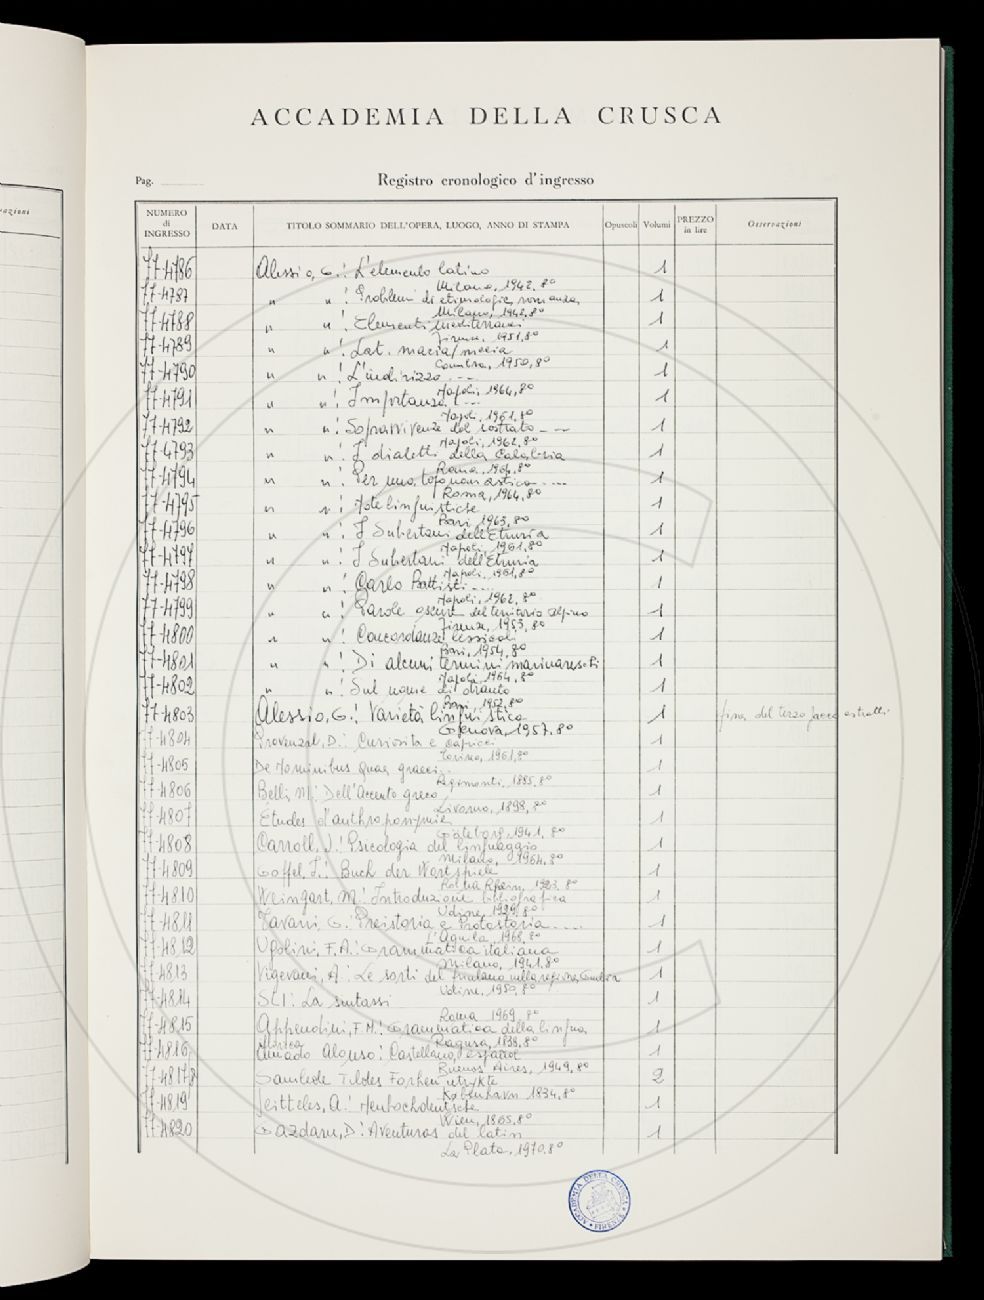 ACCADEMIA DELLA CRUSCA
Pag.
Registro cronologico d'ingresso
NUMERO di INGRESSO DATA TITOLO SOMMARIO DELL'OPERA, LUOGO, ANNO DI STAMPA Opuscoli Volumi PREZZO in lire Osservazioni
77-4786 Alessio, G.: L'elemento latino 1
Milano, 1942, 8º
77-4787 " " : Problemi di etimologia romanza 1
Milano, 1942, 8º
77-4788 " " : Elementi mediterranei 1
Firenze, 1951, 8º
77-4789 " " : Lat. macia/meria 1
Coimbra, 1950, 8º
77-4790 " " : L'indirizzo ... 1
Napoli, 1964, 8º
77-4791 " " : Importanza ... 1
Napoli, 1961, 8º
77-4792 " " : Sopravvivenze del sostrato ... 1
Napoli, 1962, 8º
77-4793 " " : I dialetti della Calabria 1
Roma, 1964, 8º
77-4794 " " : Per una toponomastica .... 1
Roma, 1964, 8º
77-4795 " " : Note linguistiche 1
Bari, 1963, 8º
77-4796 " " : I Subertani dell'Etruria 1
Napoli, 1961, 8º
77-4797 " " : I Subertani dell'Etruria 1
Napoli, 1961, 8º
77-4798 " " : Carlo Battisti ... 1
Napoli, 1962, 8º
77-4799 " " : Parole oscure del territorio alpino 1
Firenze, 1953, 8º
77-4800 " " : Concordanze lessicali 1
Bari, 1954, 8º
77-4801 " " : Di alcuni termini marinareschi 1
Napoli, 1964, 8º
77-4802 " " : Sul nome di Otranto 1
Bari, 1952, 8º
77-4803 Alessio, G.: Varietà linguistica 1 fine del terzo pacco estratti
Genova, 1957, 8º
77-4804 Provenzal, D.: Curiosità e capricci 1
Torino, 1961, 8º
77-4805 De nominibus quae graeci... 1
Regimonti, 1885, 8º
77-4806 Belli, M.: Dell'Accento greco 1
Livorno, 1898, 8º
77-4807 Études d'anthroponymie 1
Göteborg, 1941, 8º
77-4808 Carroll, J.: Psicologia del linguaggio 1
Milano, 1964, 8º
77-4809 Goffel, J.: Buch der Wortspiele 1
1923, 8º
77-4810 Weingart, M.: Introduzione bibliografica 1
Udine, 1929, 8º
77-4811 Tavani, G.: Preistoria e Protostoria .... 1
L'Aquila, 1968, 8º
77-4812 Ugolini, F.A.: Grammatica italiana 1
Milano, 1941, 8º
77-4813 Vigevani, A.: Le sorti del friulano nella regione 1
Udine, 1950, 8º
77-4814 SLI: La sintassi 1
Roma 1969, 8º
77-4815 Appendini, F.M.: Grammatica della lingua 1
illirica Ragusa, 1838, 8º
77-4816 Amado Alonso: Castellano, español 1
Buenos Aires, 1949, 8º
77-4817/8 Samlede Tildes Forhen utrykte 2
København 1834, 8º
77-4819 Jeitteles, A.: Neuhochdeutsche 1
Wien, 1865, 8º
77-4820 Gazdaru, D.: Aventuras del latín 1
La Plata, 1970, 8º
ACCADEMIA DELLA CRUSCA
FIRENZE